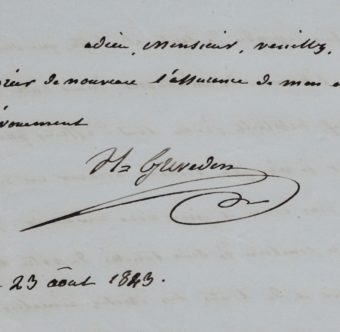 adieu, Monsieur, veuillez,
de nouveau l'assurance de mon
vouement
Hte Grevedon
23 août 1843.